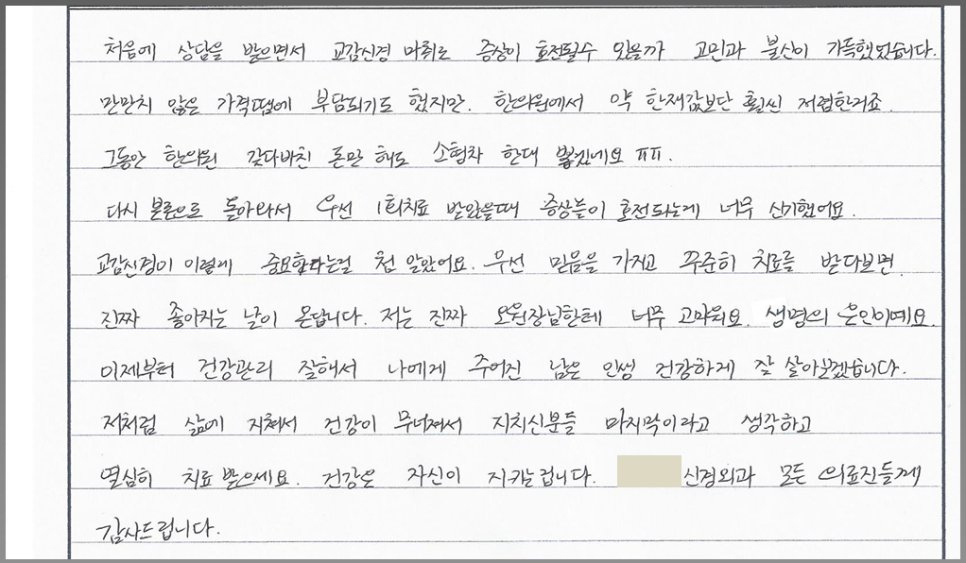 처음에 상담을 받으면서 교감신경 마취로 증상이 호전될수 있을까 고민과 불신이 가득했었습니다.
만만치 않은 가격땜에 부담되기도 했지만. 한의원에서 약 한재값보단 훨씬 저렴한거죠.
그동안 한의원 갖다바친 돈만 해도 소형차 한대 뽑겠네요 ㅠㅠ.
다시 본론으로 돌아와서 우선 1회치료 받았을때 증상들이 호전되는게 너무 신기했어요.
교감신경이 이렇게 중요하다는걸 첨 알았어요. 우선 믿음을 가지고 꾸준히 치료를 받다보면
진짜 좋아지는 날이 온답니다. 저는 진짜 오원장님한테 너무 고마워요. 생명의 은인이예요.
이제부터 건강관리 잘해서 나에게 주어진 남은 인생 건강하게 잘 살아보겠습니다.
저처럼 삶에 지쳐서 건강이 무너져서 지치신분들 마지막이라고 생각하고
열심히 치료 받으세요. 건강은 자신이 지키는겁니다. 신경외과 모든 의료진들께
감사드립니다.